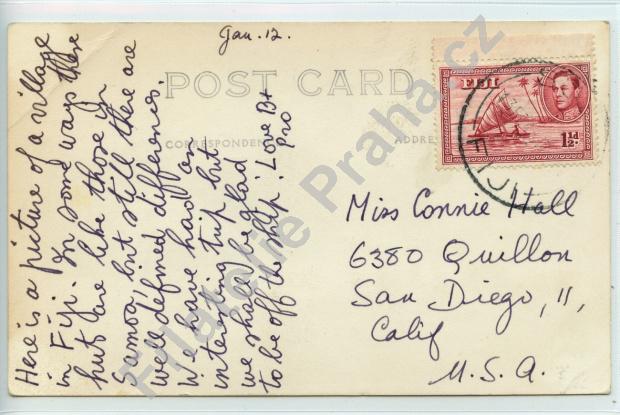 Jan. 12.
POST CARD
CORRESPONDEN
ADDRE
FIJI
1½d
FIJI
Here is a picture of a village
in Fiji. In some ways these
huts are like those in
Samoa, but still there are
well defined differences.
We have had an
interesting trip but
we shall be glad
to be off the ship. Love B+
Pro
Miss Connie Hall
6380 Quillon
San Diego, 11,
Calif
U.S.A.
Filatelie Praha.cz